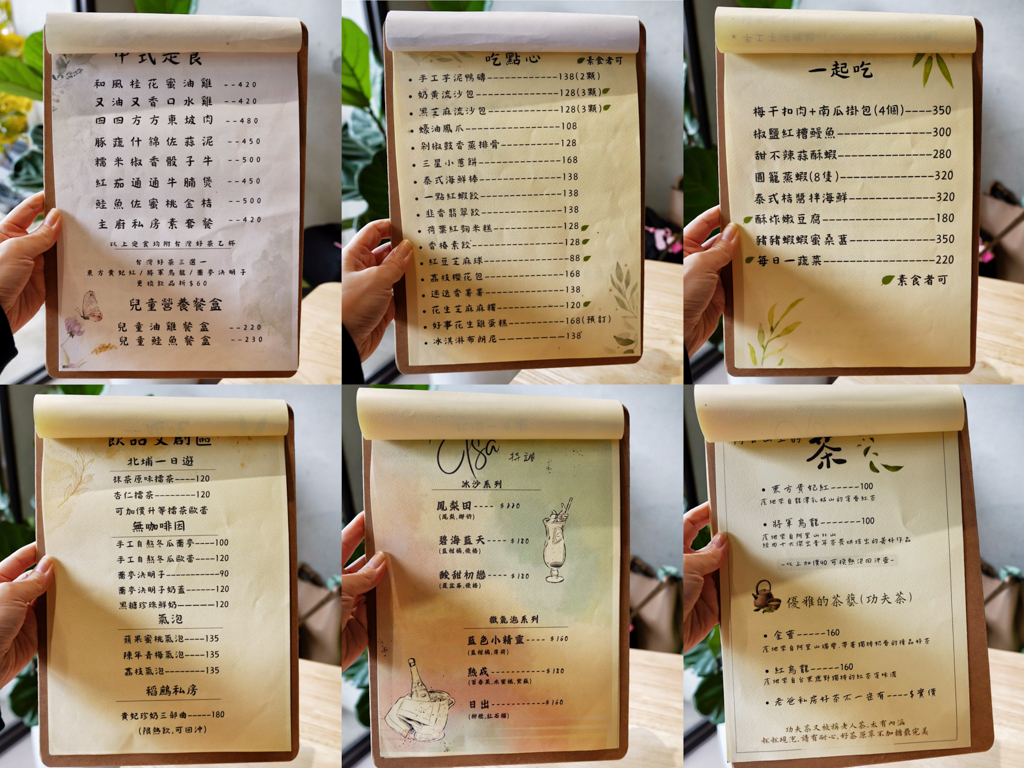 中式定食
和風桂花蜜油雞 --420
又油又香口水雞 --420
四四方方東坡肉 --480
豚蔬什錦佐蒜泥 --450
糯米椒香骰子牛 --500
紅茄通通牛腩煲 --450
鮭魚佐蜜桃金桔 --500
主廚私房素套餐 --420
以上定食均附台灣好茶乙杯
台灣好茶三選一
東方貴妃紅/將軍烏龍/蕎麥決明子
更換飲品折$60
兒童營養餐盒
兒童油雞餐盒 --220
兒童鮭魚餐盒 --230
吃點心 素食者可
• 手工芋泥鴨磚------------138(2顆)
• 奶黃流沙包------------128(3顆)
• 黑芝麻流沙包------------128(3顆)
• 蠔油鳳爪------------108
• 剁椒豉香蒸排骨------------128
• 三星小蔥餅------------168
• 泰式海鮮棒------------138
• 一點紅蝦餃------------138
• 韭香翡翠餃------------138
• 荷葉紅麴米糕------------128
• 香椿素餃------------128
• 紅豆芝麻球------------88
• 荔枝櫻花包------------168
• 迷迭香薯薯------------138
• 花生芝麻麻糬------------120
• 好事花生雞蛋糕------------168(預訂)
• 冰淇淋布朗尼------------138
一起吃
梅干扣肉+南瓜掛包(4個)----350
椒鹽紅糟鰻魚---------300
甜不辣蒜酥蝦---------280
圓籠蒸蝦(8隻)---------320
泰式桔醬拌海鮮---------320
酥炸嫩豆腐---------180
豬豬蝦蝦蜜桑葚---------350
每日一蔬菜---------220
素食者可
飲品文創區
北埔一日遊
抹茶原味擂茶----120
杏仁擂茶--------120
可加價升等擂茶歐蕾
無咖啡因
手工自熬冬瓜蕎麥----100
手工自熬冬瓜歐蕾----120
蕎麥決明子---------90
蕎麥決明子奶蓋------120
黑糖珍珠鮮奶------120
氣泡
蘋果蜜桃氣泡----135
陳年青梅氣泡----135
荔枝氣泡------135
稻鷓私房
貴妃珍奶三部曲-----180
(限熱飲,可回沖)
Elsa 特調
冰沙系列
鳳梨田----$120
(鳳梨,椰奶)
碧海藍天----$120
(藍柑橘,優格)
酸甜初戀----$120
優格)
微氣泡系列
藍色小精靈----$160
(藍柑橘,薄荷)
熟成--------$120
(百香果,水蜜桃,紫蘇)
日出--------$160
(柳橙,紅石榴)
茶
• 東方貴妃紅-----100
• 將軍烏龍-------100
產地來自阿里山
-以上加價90可換熱沖回沖壺-
優雅的茶藝(功夫茶)
• 金萱-----160
• 紅烏龍-----160
• 老爸私房好茶不一定有----$實價
功夫茶又被稱老人茶,未有內涵
叔叔現泡,請有耐心,好茶原來不加糖最完美